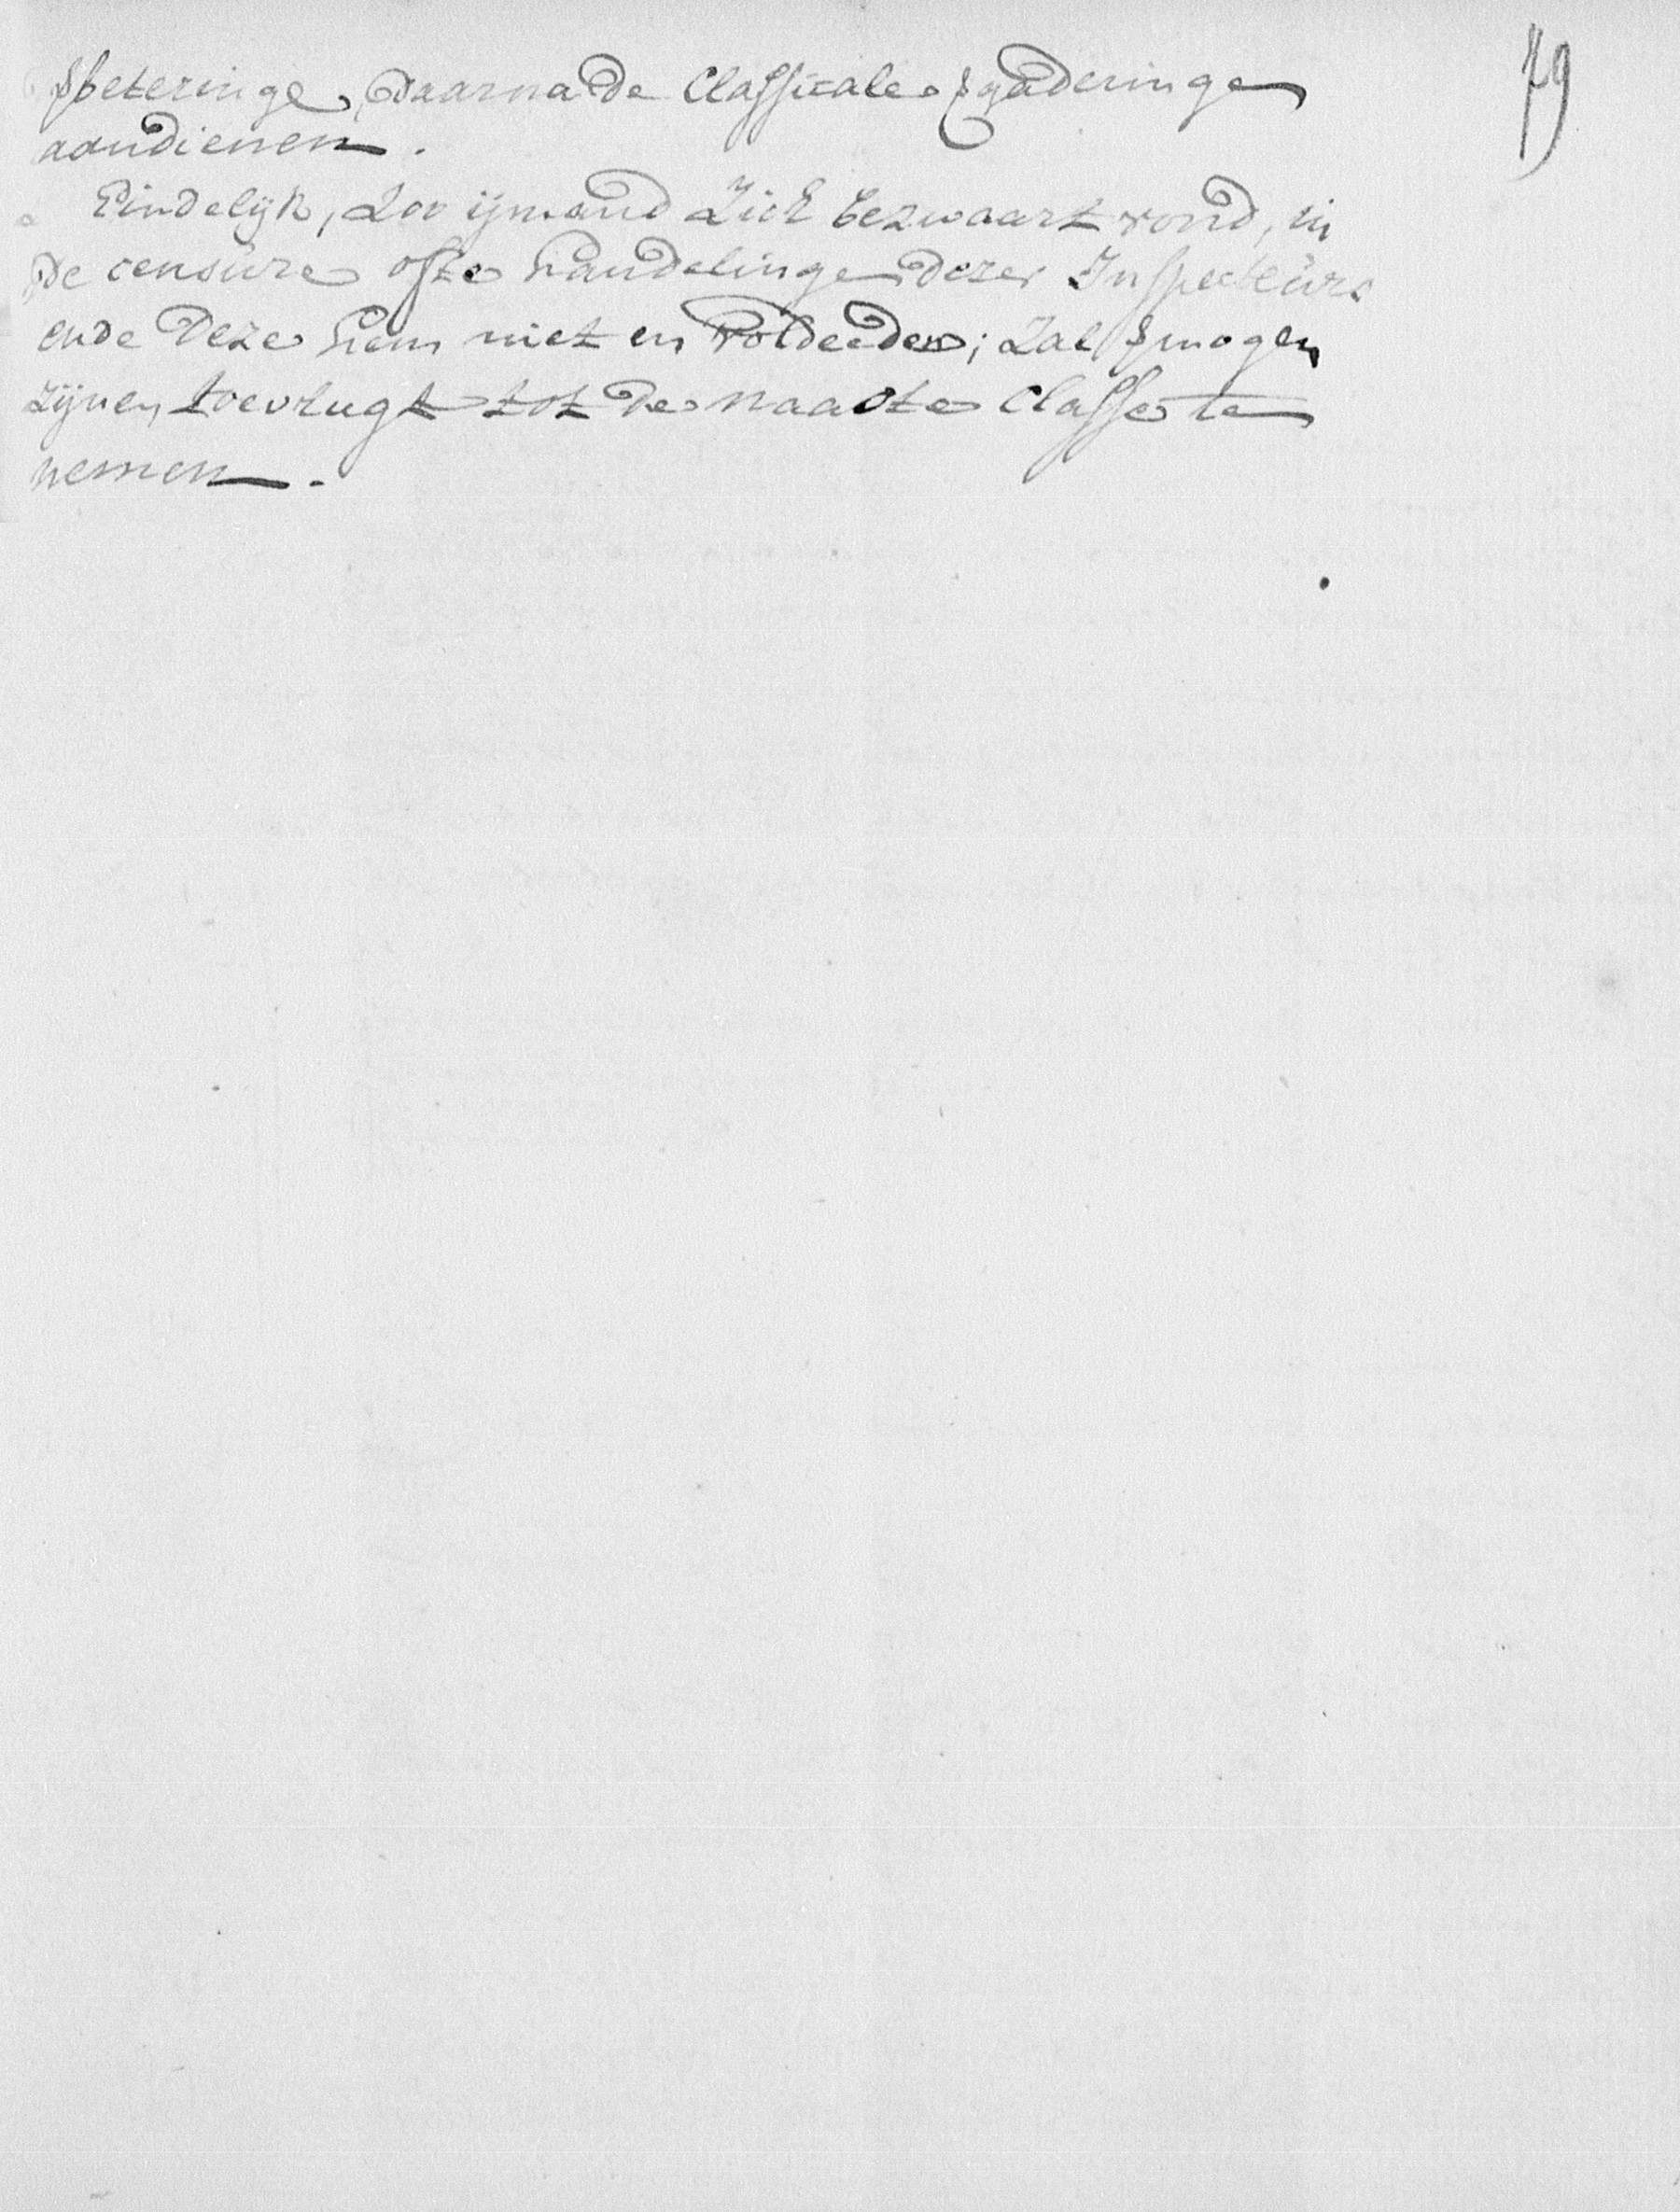 79
vbeteringe, daarna de Classicale vgaderinge
aandienen.
Eindelijk, Zoo ijmand Zich bezwaart vond, in
de censure ofte handelinge dezer Inspecteurs
ende deze hem niet en voldeeden; Zal vmogen
zijnen toevlugt tot de naaste Classe te
nemen.